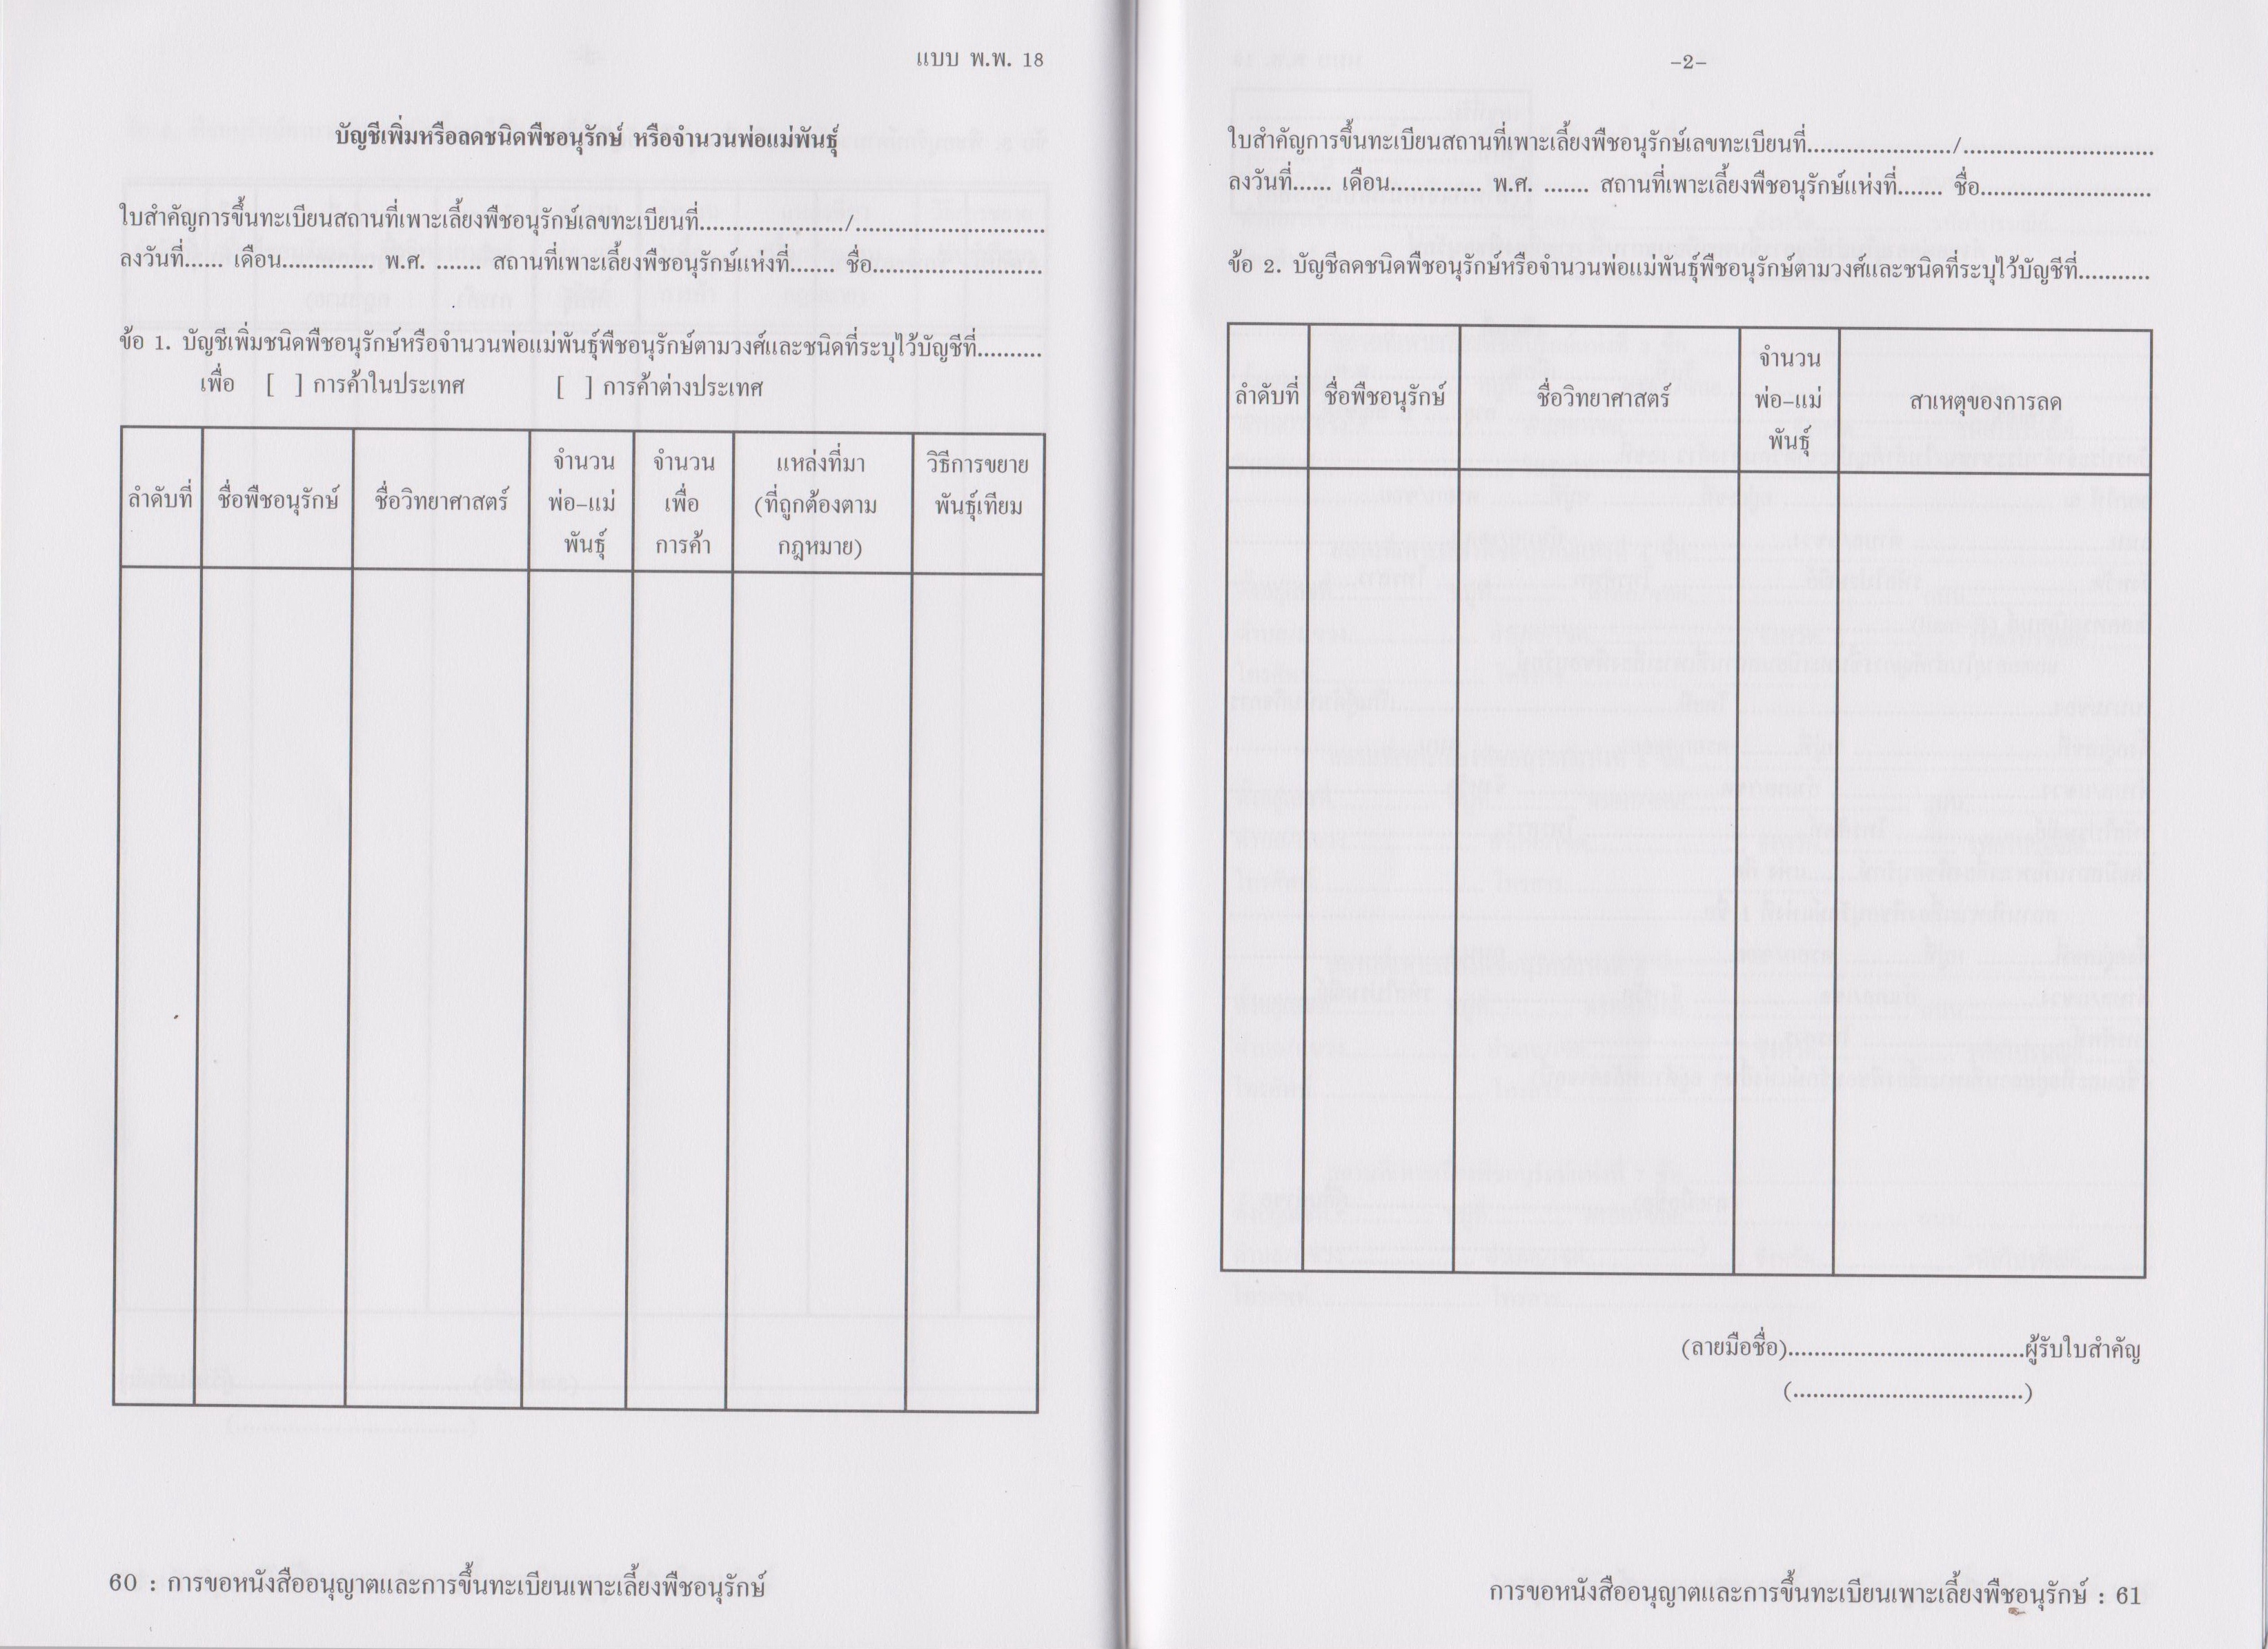 แบบ พ.พ. 18
บัญชีเพิ่มหรือลดชนิดพืชอนุรักษ์ หรือจำนวนพ่อแม่พันธุ์
ใบสำคัญการขึ้นทะเบียนสถานที่เพาะเลี้ยงพืชอนุรักษ์เลขทะเบียนที่....................../.............................
ลงวันที่...... เดือน.............. พ.ศ. ....... สถานที่เพาะเลี้ยงพืชอนุรักษ์แห่งที่....... ชื่อ..........................
ข้อ 1. บัญชีเพิ่มชนิดพืชอนุรักษ์หรือจำนวนพ่อแม่พันธุ์พืชอนุรักษ์ตามวงศ์และชนิดที่ระบุไว้บัญชีที่..........
เพื่อ [ ] การค้าในประเทศ [ ] การค้าต่างประเทศ
ลำดับที่ ชื่อพืชอนุรักษ์ ชื่อวิทยาศาสตร์ จำนวน พ่อ-แม่ พันธุ์ จำนวน เพื่อ การค้า แหล่งที่มา (ที่ถูกต้องตาม กฎหมาย) วิธีการขยาย พันธุ์เทียม
60 : การขอหนังสืออนุญาตและการขึ้นทะเบียนเพาะเลี้ยงพืชอนุรักษ์
-2-
ใบสำคัญการขึ้นทะเบียนสถานที่เพาะเลี้ยงพืชอนุรักษ์เลขทะเบียนที่....................../.............................
ลงวันที่...... เดือน.............. พ.ศ. ....... สถานที่เพาะเลี้ยงพืชอนุรักษ์แห่งที่....... ชื่อ..........................
ข้อ 2. บัญชีลดชนิดพืชอนุรักษ์หรือจำนวนพ่อแม่พันธุ์พืชอนุรักษ์ตามวงศ์และชนิดที่ระบุไว้บัญชีที่...........
ลำดับที่ ชื่อพืชอนุรักษ์ ชื่อวิทยาศาสตร์ จำนวน พ่อ-แม่ พันธุ์ สาเหตุของการลด
(ลายมือชื่อ)....................................ผู้รับใบสำคัญ
(...................................)
การขอหนังสืออนุญาตและการขึ้นทะเบียนเพาะเลี้ยงพืชอนุรักษ์ : 61